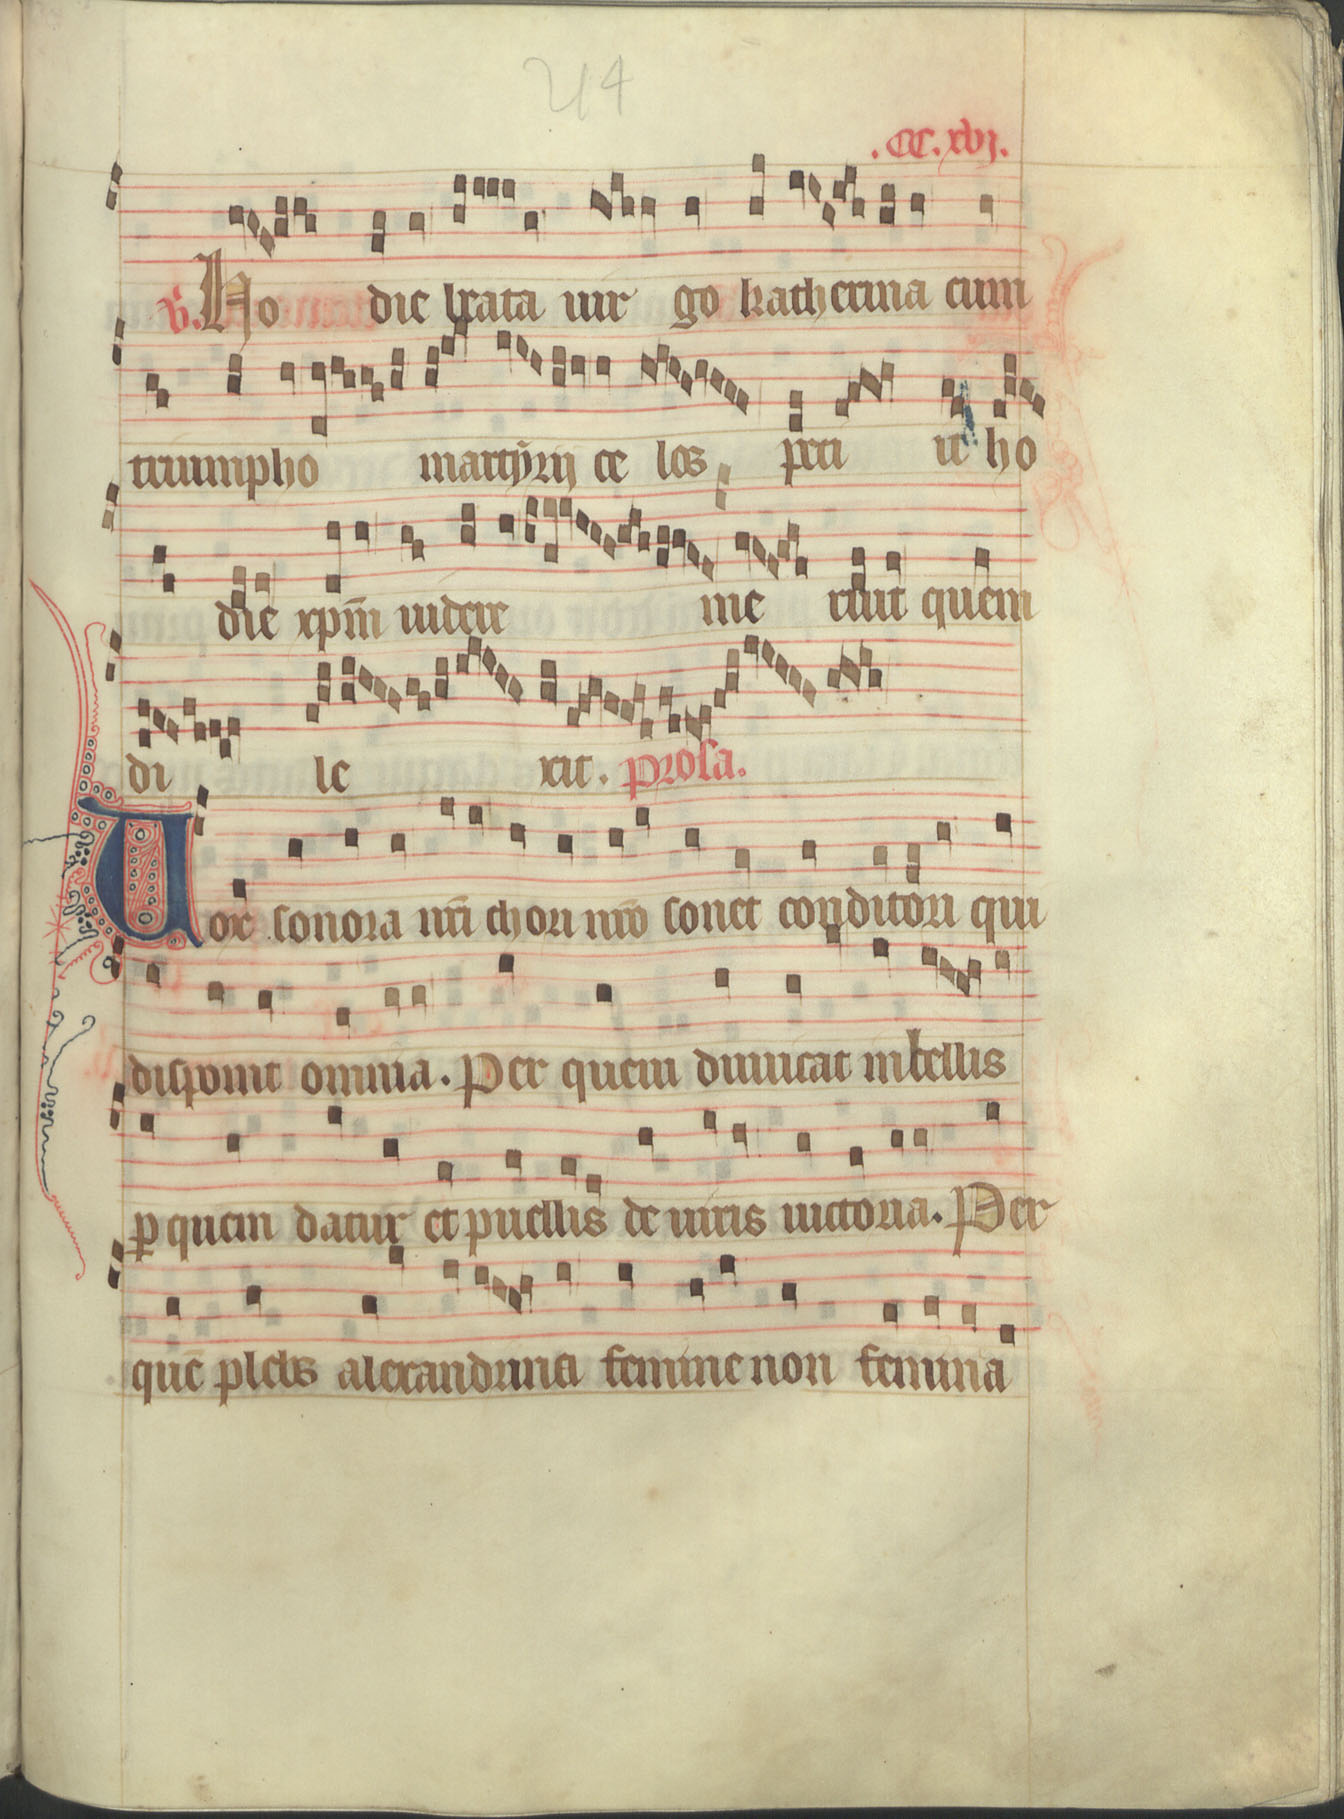 214
.CC.xvj.
V. Ho die beata uir go katherina cum
triumpho martyrij ce los peti it ho
die xpm̄ uidere me ruit quem
di le xit. prosa.
Uox sonora nr̄i chori nr̄o sonet conditori qui
disponit omnia. Per quem dimicat imbellis
ꝑ quem datur et puellis de uiris uictoria. Per
quē plebs alexandrina femine non femina